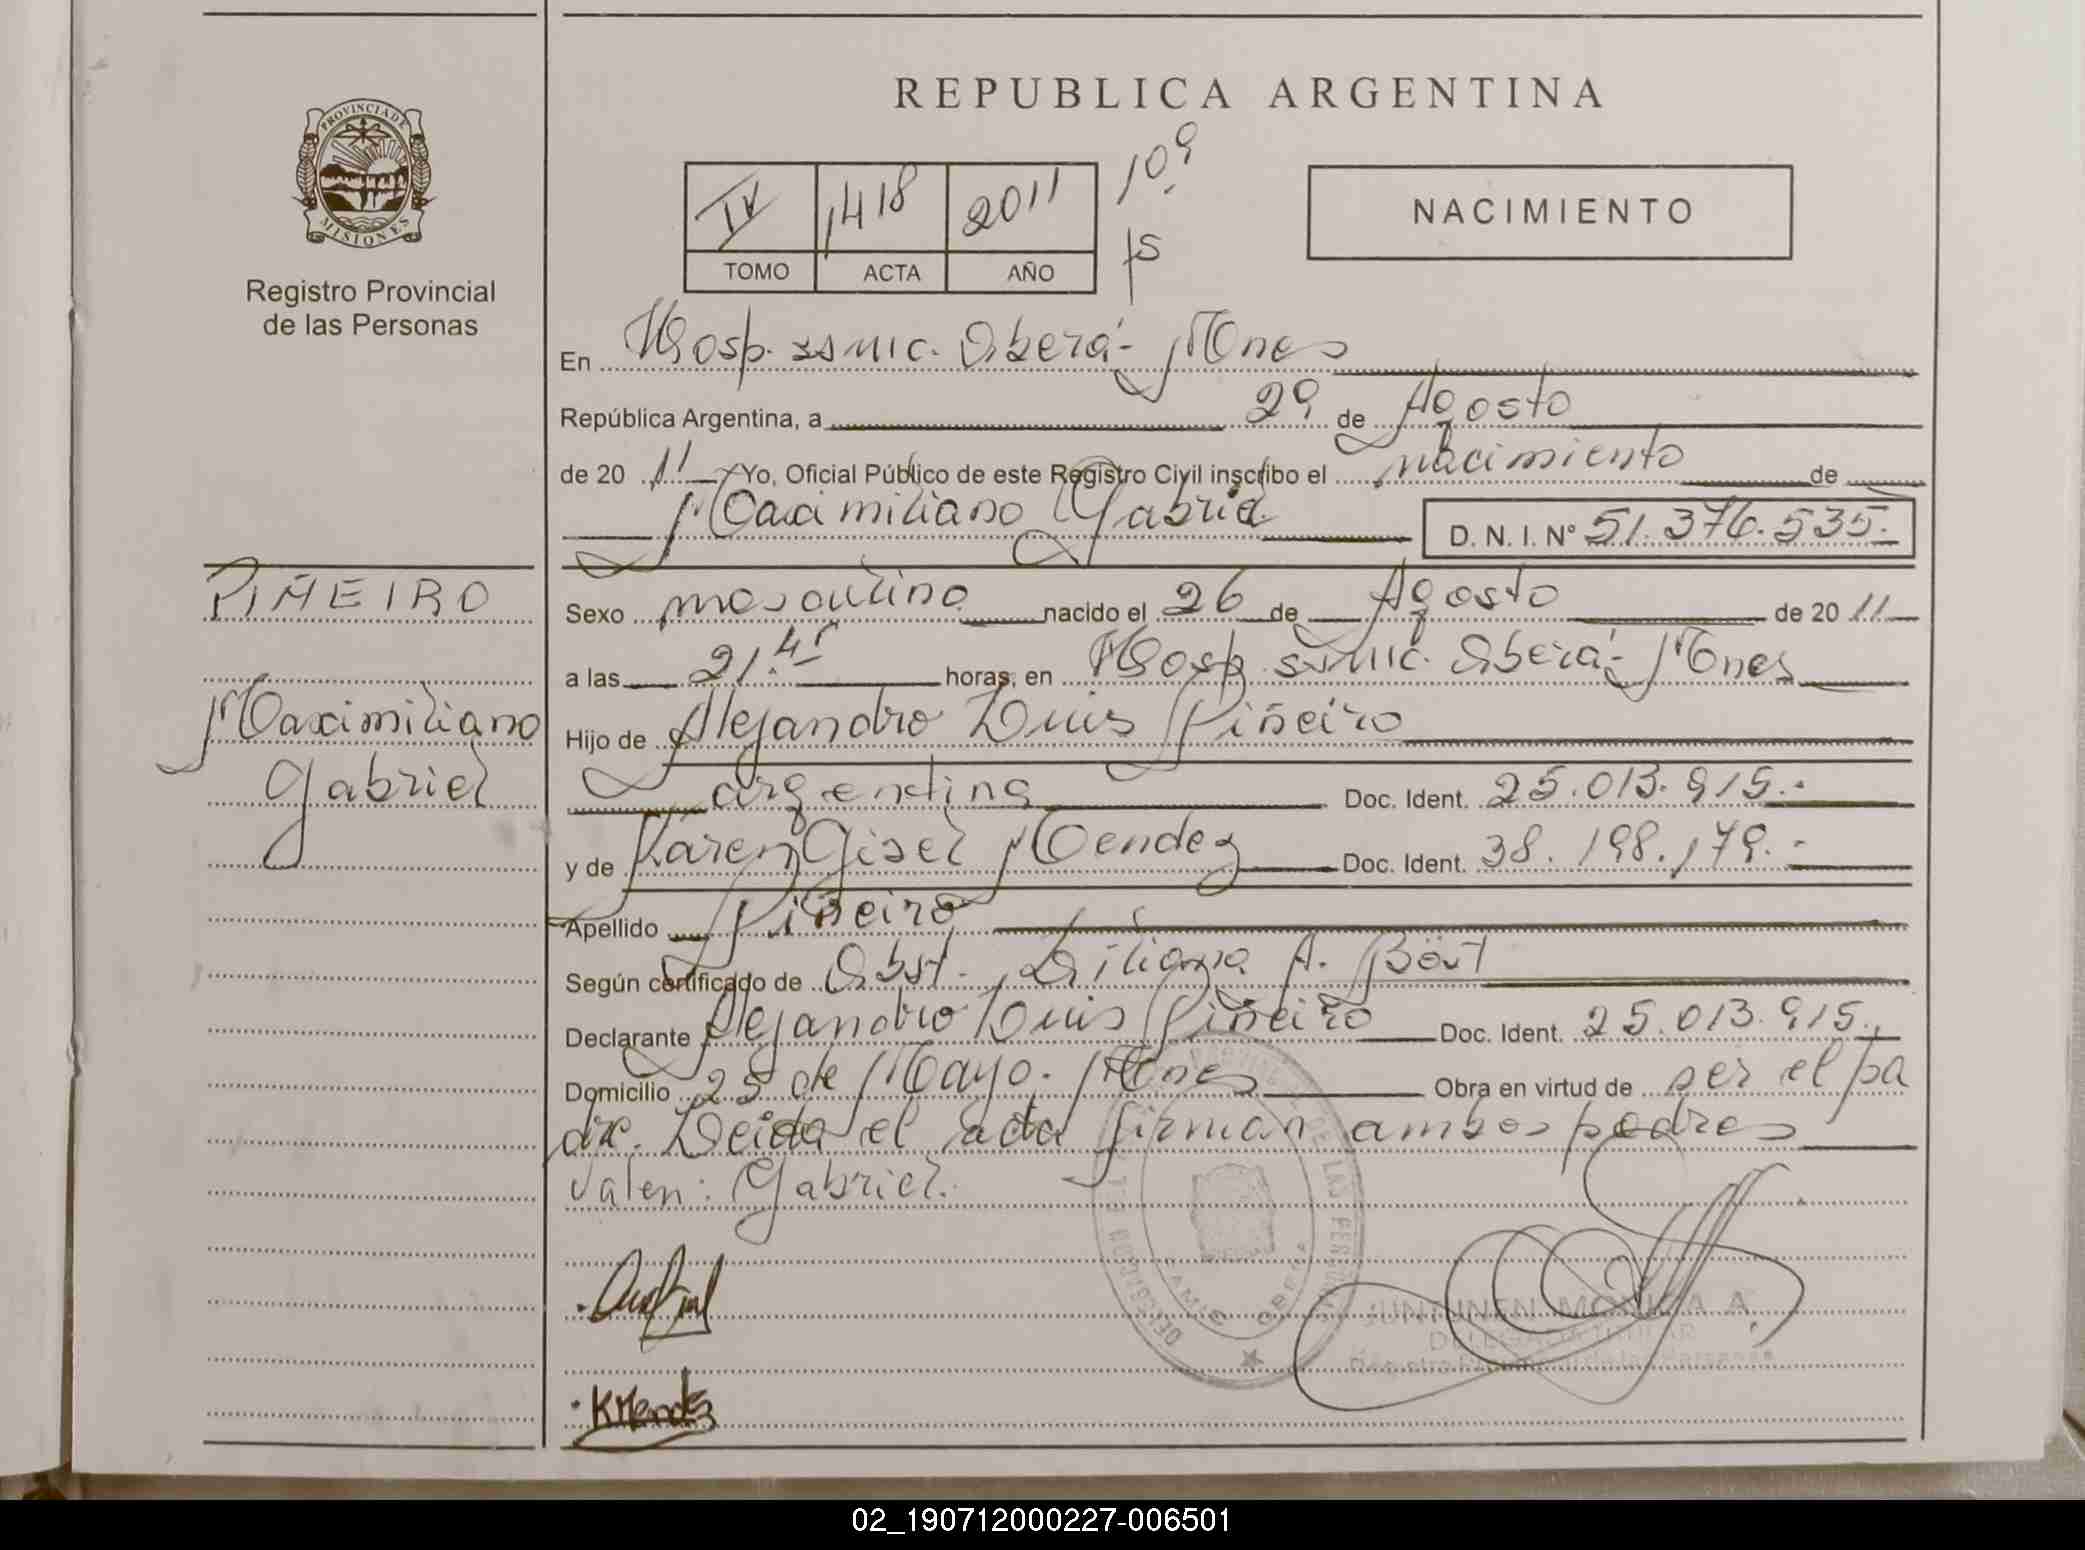 REPUBLICA ARGENTINA
PROVINCIA DE
MISIONES
Registro Provincial
de las Personas
IV 1418 2011
TOMO ACTA AÑO
NACIMIENTO
En Hosp. ssmic. Oberá- Mnes
República Argentina, a 29 de Agosto
de 20 11 Yo, Oficial Público de este Registro Civil inscribo el nacimiento de
Maximiliano Gabriel D. N. I. Nº 51.376.535.-
PIÑEIRO
Maximiliano
Gabriel
Sexo masculino nacido el 26 de Agosto de 20 11
a las 21.45 horas, en Hosp. ssmic. Oberá- Mnes
Hijo de Alejandro Luis Piñeiro
argentina Doc. Ident. 25.013.915.-
y de Karen Gisel Mendez Doc. Ident. 38.198.179.-
Apellido Piñeiro
Según certificado de Obst. Liliana A.
Declarante Alejandro Luis Piñeiro Doc. Ident. 25.013.915.
Domicilio 25 de Mayo. Mnes Obra en virtud de ser el pa
dre. Leida el acta firman ambos padres
Valen: Gabriel.
JUNTUNEN MONICA A.
DELEGADA TITULAR
KMendez
02_190712000227-006501